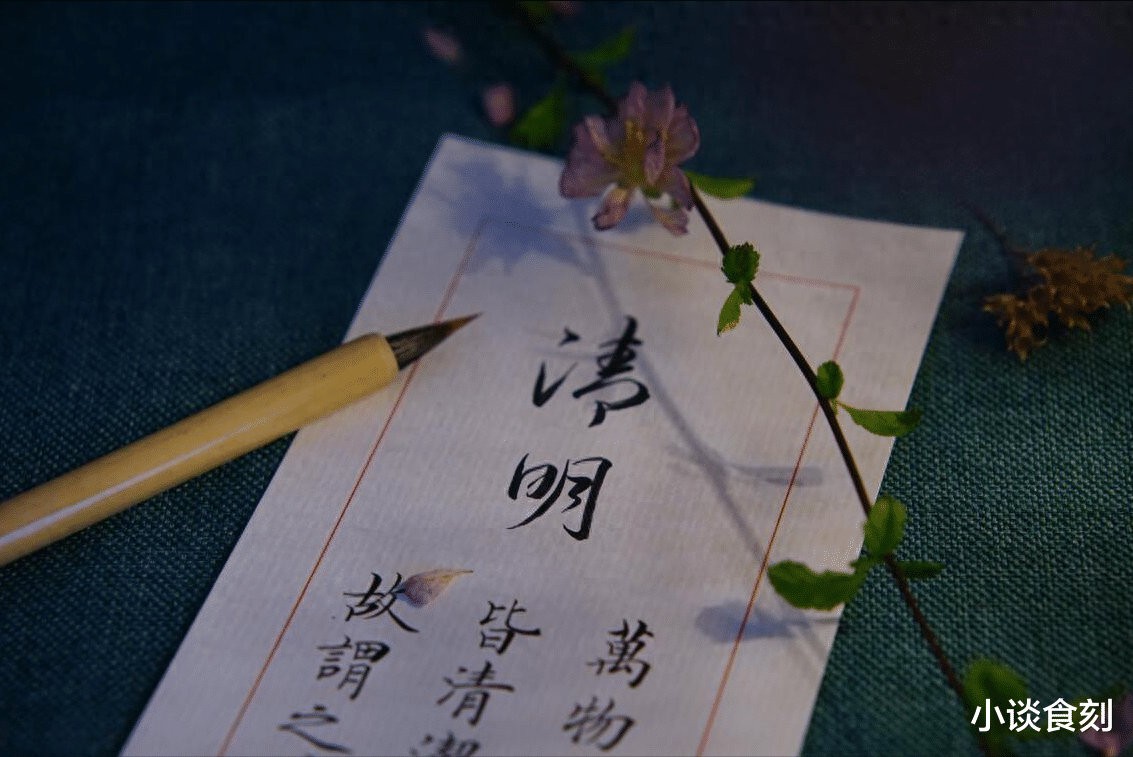 清明
萬物
皆清潔
故謂之
小谈食刻